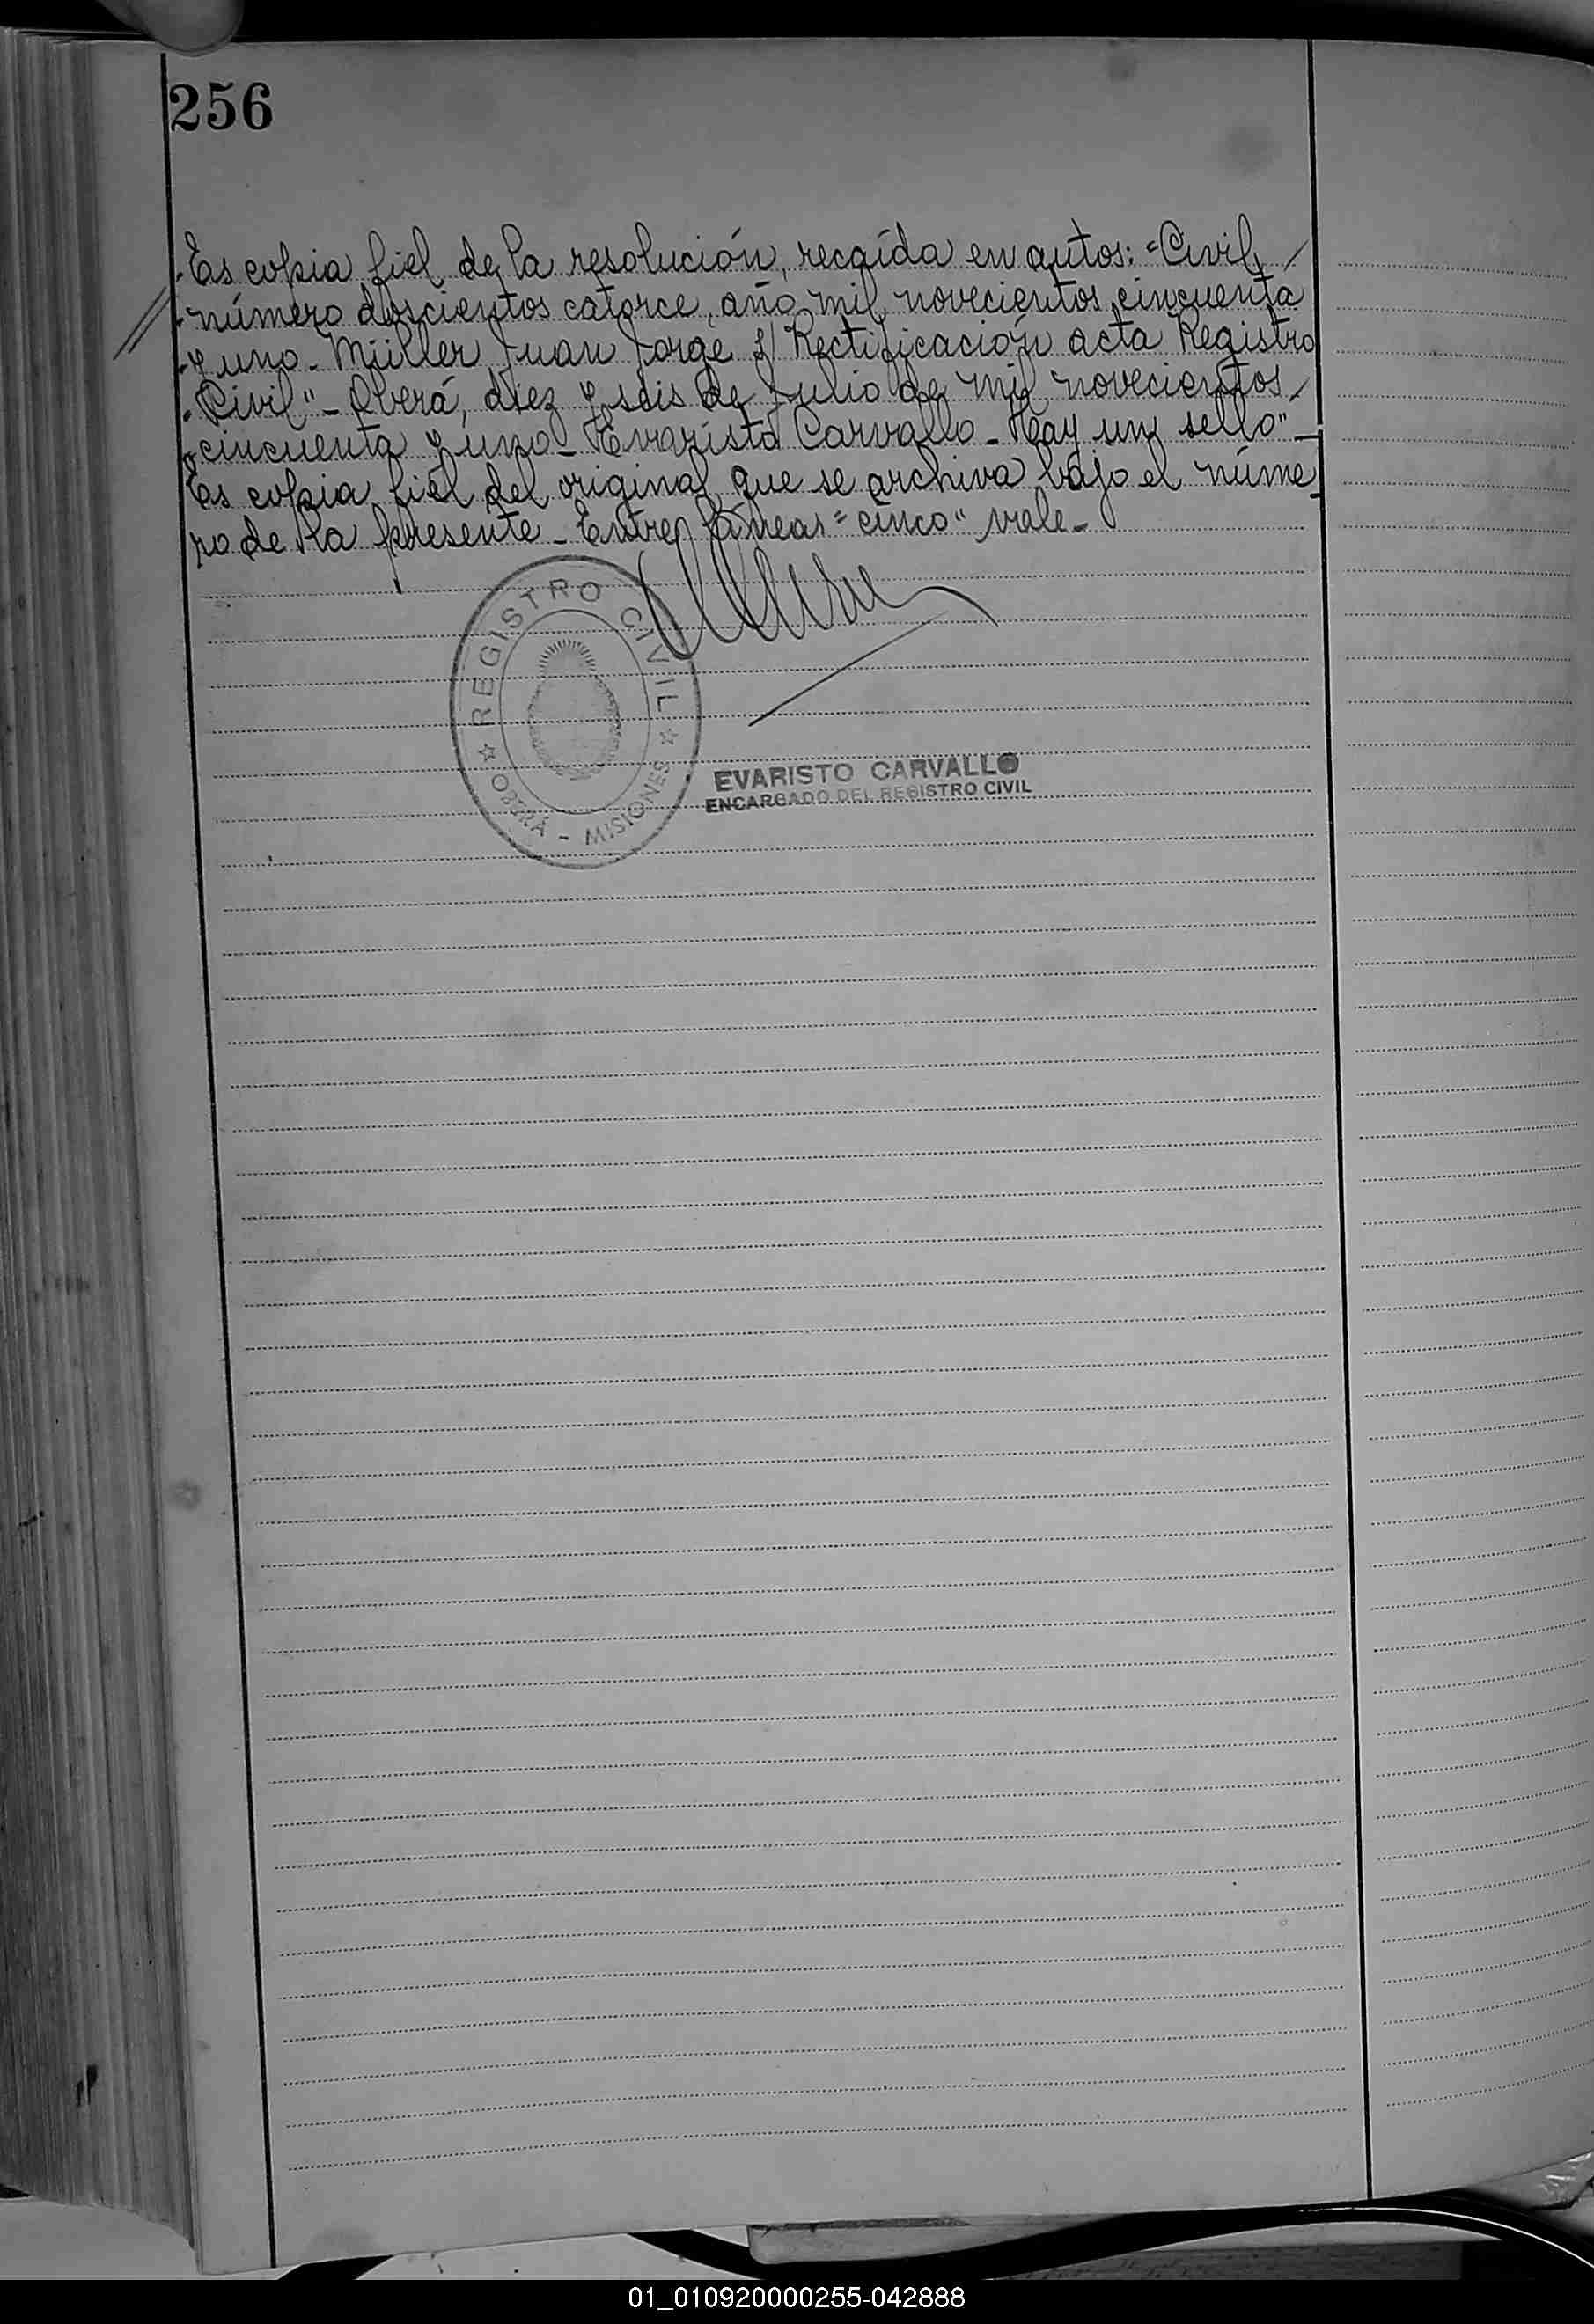 256
Es copia fiel de la resolución, recaída en autos: "Civil /
// número doscientos catorce, año mil novecientos cincuenta
y uno - Müller Juan Jorge s/ Rectificación acta Registro
Civil" - Oberá, diez y seis de Julio de mil novecientos /
cincuenta y uno - Evaristo Carvallo - Hay un sello" -
Es copia fiel del original, que se archiva bajo el núme-
ro de la presente - Entre líneas "cinco" vale -
REGISTRO CIVIL
☆ OBERÁ - MISIONES ☆
EVARISTO CARVALLO
ENCARGADO DEL REGISTRO CIVIL
01_010920000255-042888